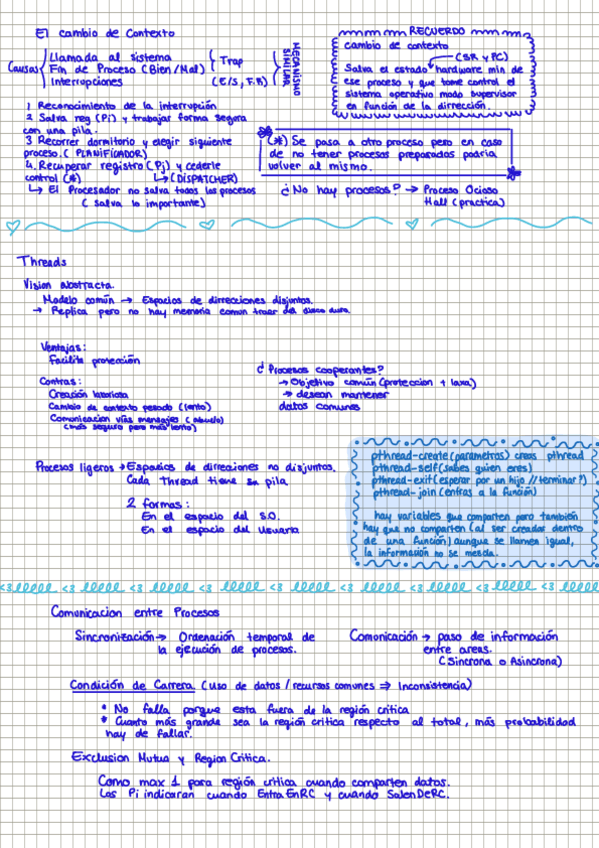 El cambio de Contexto
Causas
Llamada al sistema
Fin de Proceso (Bien/Mal)
Interrupciones
Trap
(E/S, F.R)
MECANISMO
SIMILAR
RECUERDO
cambio de contexto
(SR y PC)
Salva el estado hardware min de
ese proceso y que tome control el
sistema operativo modo supervisor
en función de la dirrección.
1 Reconocimiento de la interrupción
2 Salva reg (Pi) y trabajar forma segura
con una pila.
3 Recorrer dormitorio y elegir siguiente
proceso. (PLANIFICADOR)
4. Recuperar registro (Pj) y cederle
control (*) ↳ (DISPATCHER)
↳ El Procesador no salva todos los procesos
(salva lo importante)
(*) Se pasa a otro proceso pero en caso
de no tener procesos preparados podria
volver al mismo.
¿No hay procesos? → Proceso Ocioso
Hall (practica)
Threads
Vision Abstracta.
Modelo común → Espacios de dirrecciones disjuntos.
→ Replica pero no hay memoria comun traer del disco duro.
Ventajas:
Facilita protección
Contras:
Creación laboriosa
Cambio de contexto pesado (lento)
Comunicacion vías mensajes (abuelo)
(más seguro pero más lento)
¿Procesos cooperantes?
→ Objetivo común (proteccion + laxa)
→ desean mantener
datos comunes
Procesos ligeros → Espacios de dirrecciones no disjuntos.
Cada Thread tiene su pila
2 formas:
En el espacio del S.O.
En el espacio del Usuario
pthread-create (parametros) creas pthread
pthread-self (sabes quien eres)
pthread-exit (esperar por un hijo // terminar?)
pthread-join (entras a la función)
hay variables que comparten pero también
hay que no comparten (al ser creador dentro
de una función) aunque se llamen igual,
la información no se mezcla.
Comunicacion entre Procesos
Sincronización → Ordenación temporal de
la ejecución de procesos.
Comunicación → paso de información
entre areas.
(Sincrona o Asincrona)
Condición de Carrera (Uso de datos / recursos comunes ⇒ Inconsistencia)
* No falla porque esta fuera de la región critica
* Cuanto más grande sea la región critica respecto al total, más probabilidad
hay de fallar.
Exclusion Mutua y Region Critica.
Como max 1 para región critica cuando comparten datos.
Los Pi indicaran cuando EntraEnRC y cuando SalenDeRC.